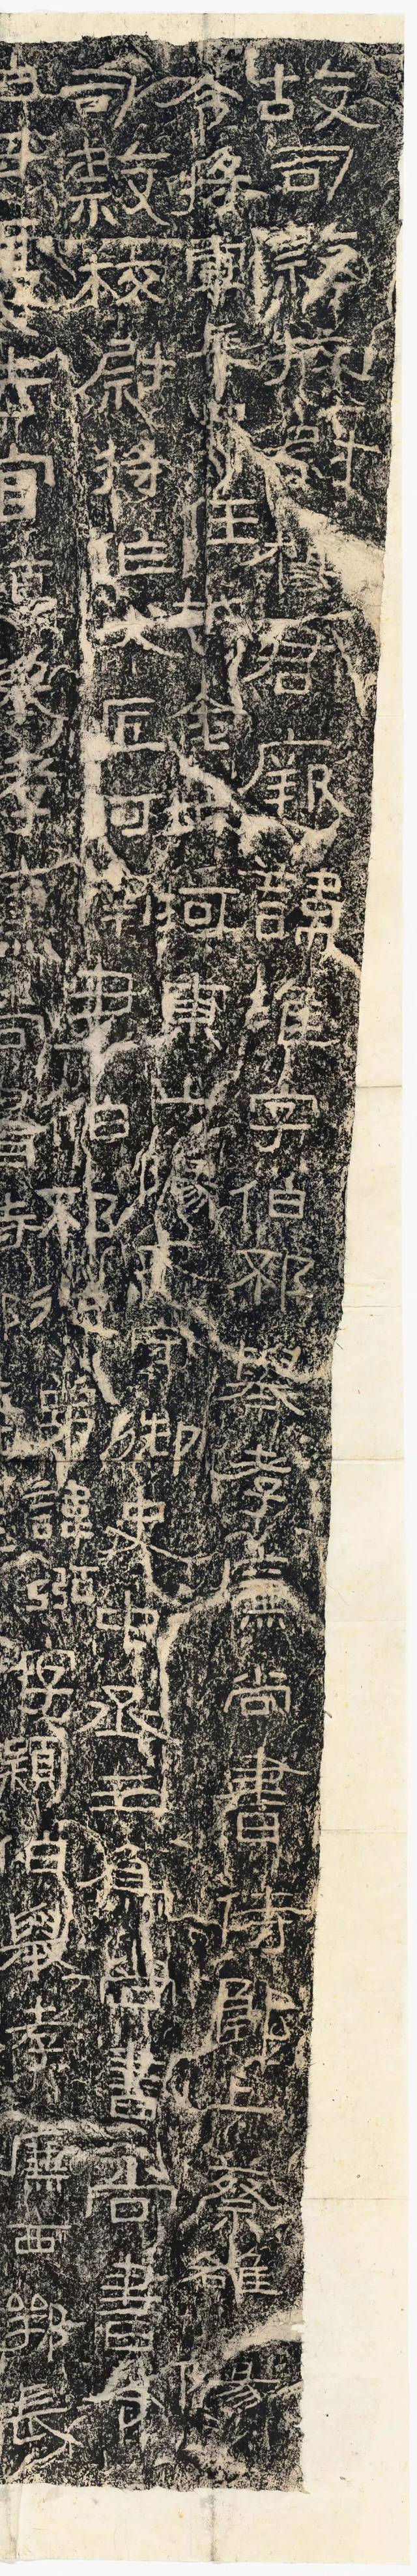 故司隸校尉楊君厥諱淮字伯邳舉孝廉尚書侍郎上蔡雒陽
令將軍長史任城金城河東山陽太守御史中丞三為尚書尚書令
司隸校尉將作大匠河南尹伯邳從弟諱弼字穎伯舉孝廉西鄂長
伯母憂去官復舉孝廉尚書侍郎